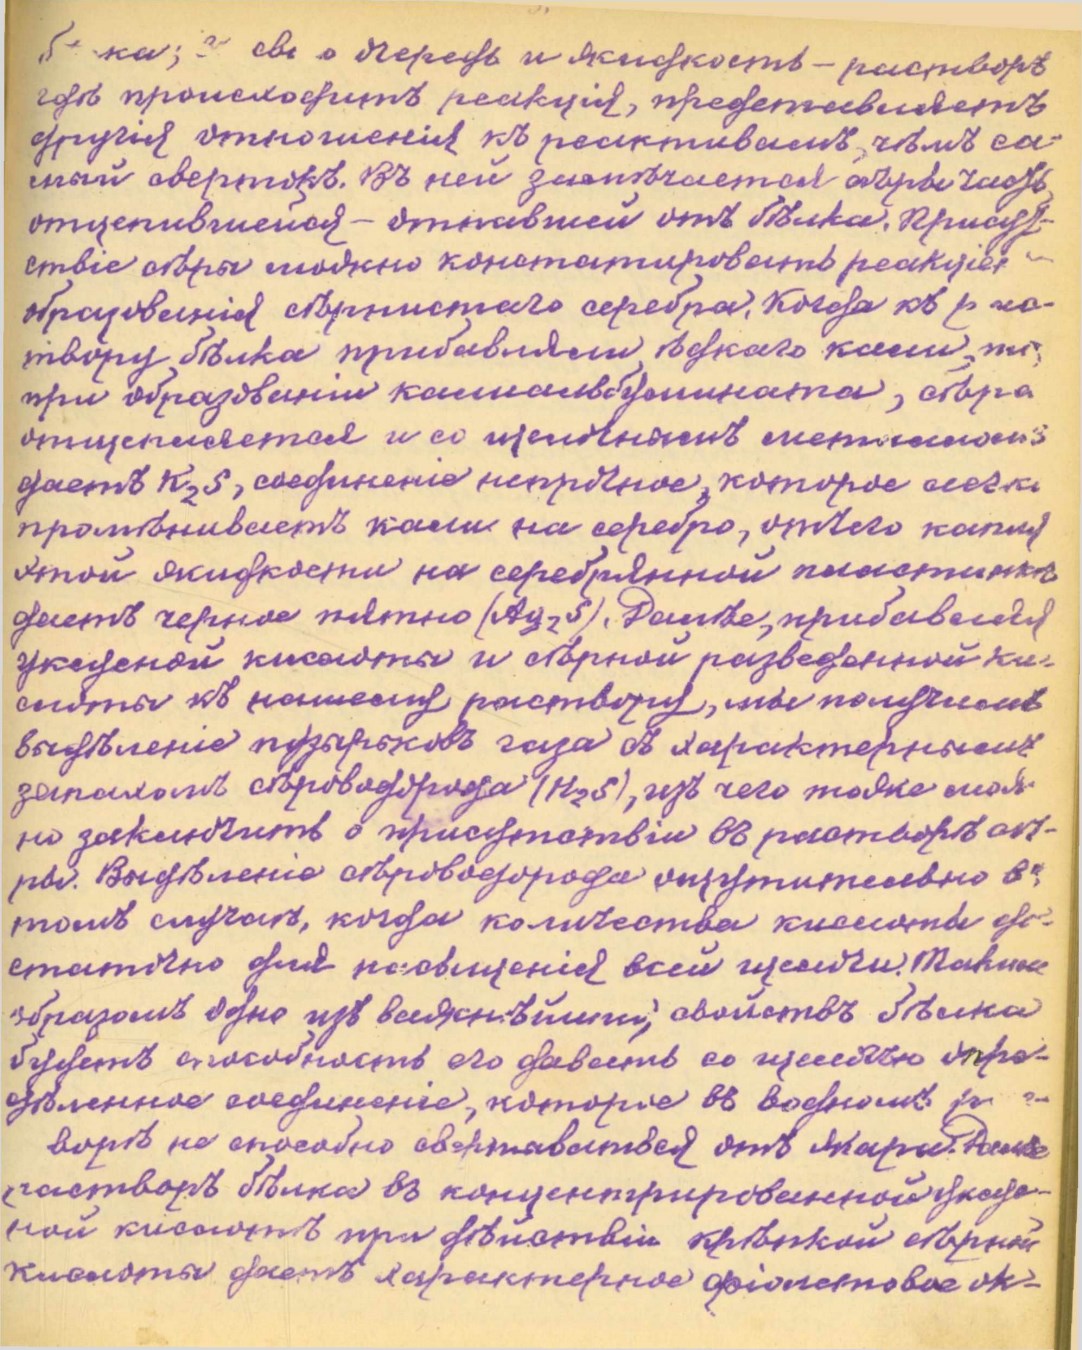 бѣлка; въ свою очередь и жидкость – растворъ
гдѣ происходитъ реакція, представляетъ
другія отношенія къ реактивамъ, чѣмъ са-
мый свертокъ. Въ ней замѣчается сѣры часть,
отщепившейся – отпавшей отъ бѣлка. Присут-
ствіе сѣры можно констатировать реакціей
образованія сѣрнистаго серебра. Когда къ рас-
твору бѣлка прибавляли ѣдкаго кали, то,
при образованіи калиальбумината, сѣра
отщепляется и со щелочнымъ металломъ
даетъ K₂S, соединеніе непрочное, которое легко
промѣниваетъ кали на серебро, отчего капля
этой жидкости на серебрянной пластинкѣ
даетъ черное пятно (Ag₂S). Далѣе, прибавляя
уксусной кислоты и сѣрной разведенной ки-
слоты къ нашему раствору, мы получимъ
выдѣленіе пузырьковъ газа съ характернымъ
запахомъ сѣроводорода (H₂S), изъ чего тоже мож-
но заключить о присутствіи въ растворѣ сѣ-
ры. Выдѣленіе сѣроводорода ощутительно въ
томъ случаѣ, когда количества кислоты до-
статочно для насыщенія всей щелочи. Такимъ
образомъ одно изъ важнѣйшихъ свойствъ бѣлка
будетъ способность его давать со щелочью опре-
дѣленное соединеніе, которое въ водномъ раст-
ворѣ не способно свертываться отъ жара. Далѣе
растворъ бѣлка въ концентрированной уксус-
ной кислотѣ при дѣйствіи крѣпкой сѣрной
кислоты даетъ характерное фіолетовое ок-